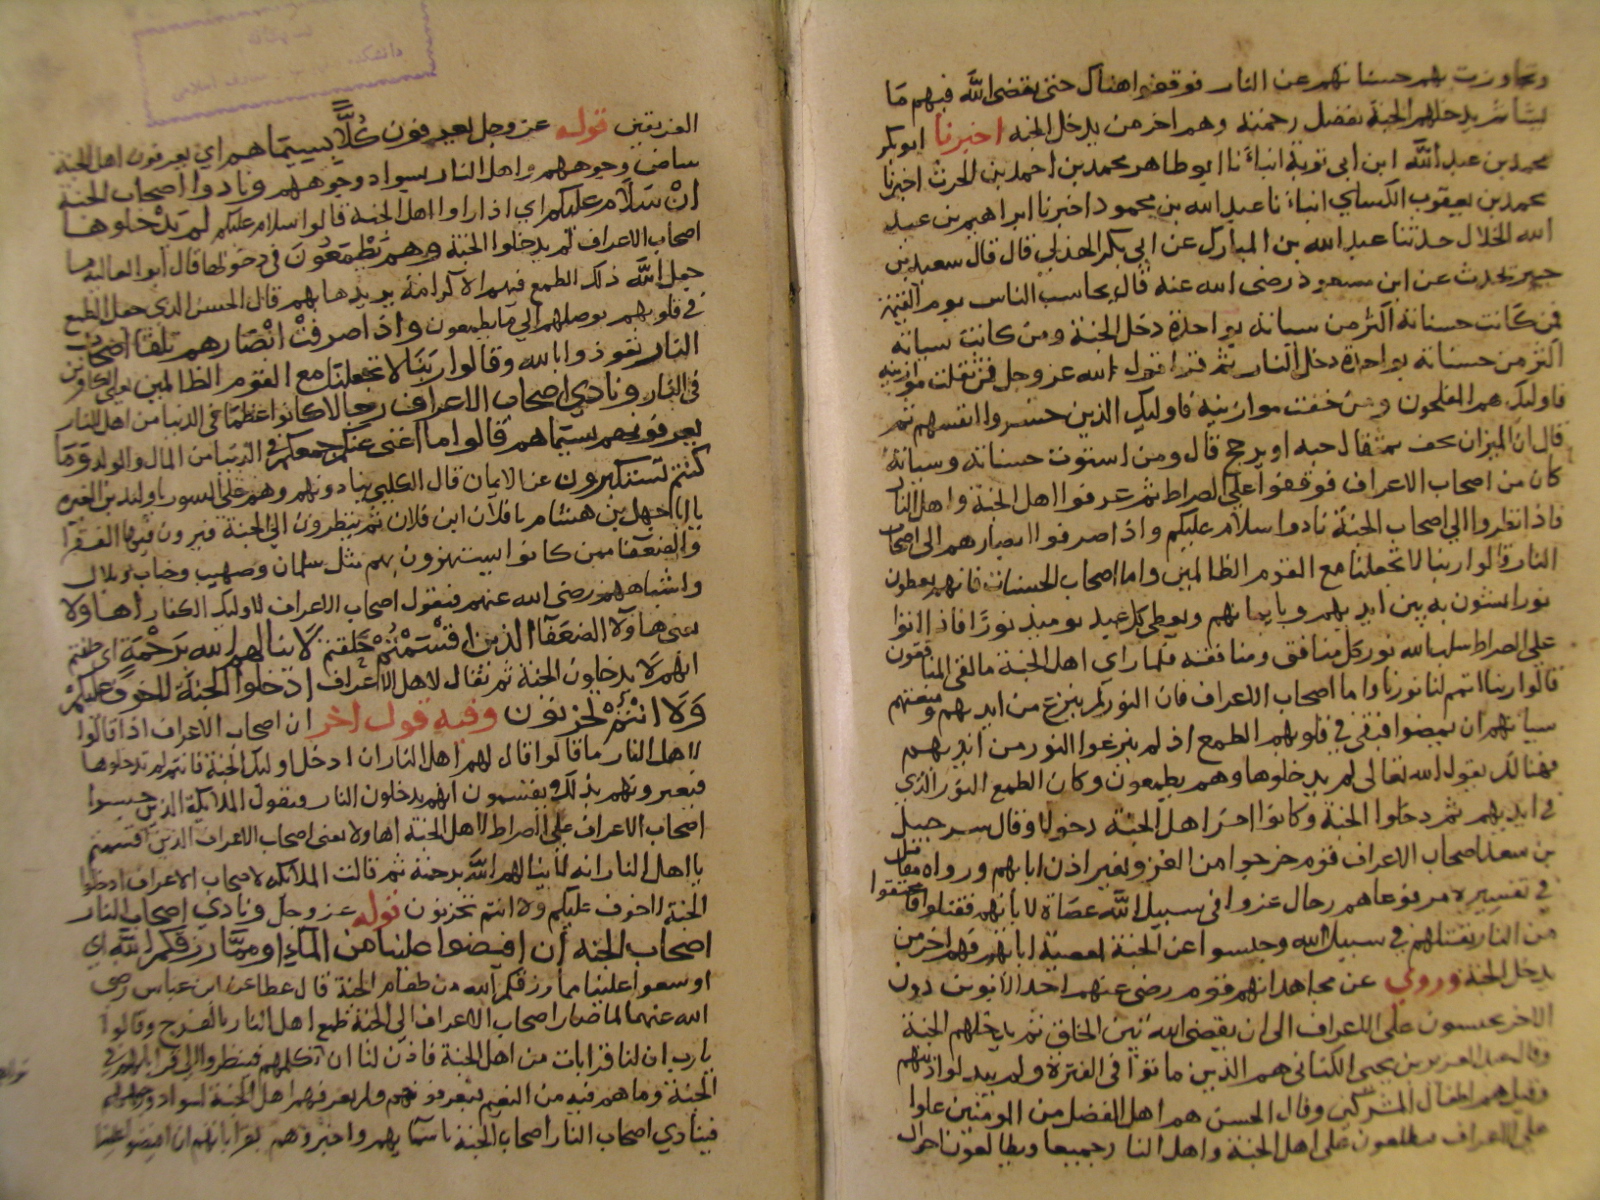 وتجاوزت بهم حسناتهم عن النار فوقفوا هناك حتى يقضى الله فيهم ما
يشاء ثم يدخلهم الجنة بفضل رحمته وهم اخر من يدخل الجنة اخبرنا ابو بكر
محمد بن عبد الله ابن ابى توبة انباءنا ابو طاهر محمد بن احمد بن الحرث اخبرنا
محمد بن يعقوب الكساى انباءنا عبد الله بن محمود اخبرنا ابراهيم بن عبد
الله الخلال حدثنا عبد الله بن المبارك عن ابى بكر الهذلى قال قال سعيد بن
جبير يحدث عن ابن مسعود رضى الله عنه قال يحاسب الناس يوم القيمة
فمن كانت حسناته اكثر من سياته بواحدة دخل الجنة ومن كانت سياته
اكثر من حسناته بواحدة دخل النار ثم قرا قول الله عز وجل فمن ثقلت موازينه
فاوليك هم المفلحون ومن خفت موازينه فاوليك الذين خسروا انفسهم ثم
قال ان الميزان يخف بمثقال حبه او يرجح قال ومن استوت حسناته وسياته
كان من اصحاب الاعراف فوقفوا على الصراط ثم عرفوا اهل الجنة واهل النار
فاذا نظروا الى اصحاب الجنة نادوا سلام عليكم واذا صرفوا ابصارهم الى اصحاب
النار قالوا ربنا لا تجعلنا مع القوم الظالمين واما اصحاب الحسنات فانهم يعطون
نورا يمشون به بين ايديهم وبايمانهم ويعطى كل عبد يوميذ نورا فاذا اتوا
على الصراط سلب الله نور كل منافق ومنافقة فلما راى اهل الجنة ما لقى المنافقون
قالوا ربنا اتمم لنا نورنا واما اصحاب الاعراف فان النور لم ينزع من ايديهم ومنعتهم
سياتهم ان يمضوا فبقى فى قلوبهم الطمع اذ لم ينزعوا النور من ايديهم
فهنالك يقول الله تعالى لم يدخلوها وهم يطمعون وكان الطمع النور الذى
فى ايديهم ثم دخلوا الجنة وكانوا اخر اهل الجنة دخولا وقال شرحبيل
بن سعد اصحاب الاعراف قوم خرجوا من الغزو بغير اذن ابايهم ورواه مقاتل
فى تفسيره مرفوعا هم رجال غزوا فى سبيل الله عصاة لابايهم فقتلوا فاعتقوا
من النار بقتلهم فى سبيل الله وحبسوا عن الجنة لمعصية ابايهم فهم اخر من
يدخل الجنة وروى عن مجاهد انهم قوم رضى عنهم احد الابوين دون
الاخر يحبسون على الاعراف الى ان يقضى الله بين الخلق ثم يدخلهم الجنة
وقال عبد العزيز بن يحيى الكنانى هم الذين ماتوا فى الفترة ولم يبدلوا دينهم
وقيل هم اطفال المشركين وقال الحسن هم اهل الفضل من المومنين علوا
على الاعراف يطلعون على اهل الجنة واهل النار جميعا ويطالعون احوال
الفريقين قوله عز وجل يعرفون كلا بسيماهم اى يعرفون اهل الجنة
ببياض وجوههم واهل النار بسواد وجوههم ونادوا اصحاب الجنة
ان سلام عليكم اى اذا راوا اهل الجنة قالوا سلام عليكم لم يدخلوها
اصحاب الاعراف لم يدخلوا الجنة وهم يطمعون فى دخولها قال ابو العالية ما
جعل الله ذلك الطمع فيهم الا كرامة يريدها بهم قال الحسن الذى جعل الطمع
فى قلوبهم يوصلهم الى ما يطمعون واذا صرفت ابصارهم تلقا اصحاب
النار تعوذوا بالله وقالوا ربنا لا تجعلنا مع القوم الظالمين يعنى الكافرين
فى النار ونادى اصحاب الاعراف رجالا كانوا عظما فى الدنيا من اهل النار
يعرفونهم بسيماهم قالوا ما اغنى عنكم جمعكم فى الدنيا من المال والولد وما
كنتم تستكبرون عن الايمان قال الكلبى ينادونهم وهم على السور يا وليد بن المغيرة
يا ابا جهل بن هشام يا فلان ابن فلان ثم ينظرون الى الجنة فيرون فيها الفقرا
والضعفا ممن كانوا يستهزون بهم مثل سلمان وصهيب وخباب وبلال
واشباههم رضى الله عنهم فيقول اصحاب الاعراف لاوليك الكفار اهاولا
يعنى هاولا الضعفا الذين اقسمتم حلفتم لا ينالهم الله برحمة اى حلفتم
انهم لا يدخلون الجنة ثم يقال لاهل الاعراف ادخلوا الجنة لا خوف عليكم
ولا انتم تحزنون وفيه قول اخر ان اصحاب الاعراف اذا قالوا
لاهل النار ما قالوا قال لهم اهل النار ان ادخل اوليك الجنة فانتم لم تدخلوها
فيعيرونهم بذلك ويقسمون انهم يدخلون النار فتقول الملايكة الذين حبسوا
اصحاب الاعراف على الصراط لاهل الجنة اهاولا يعنى اصحاب الاعراف الذين اقسمتم
يا اهل النار انه لا ينالهم الله برحمة ثم قالت الملايكة لاصحاب الاعراف ادخلوا
الجنة لا خوف عليكم ولا انتم تحزنون قوله عز وجل ونادى اصحاب النار
اصحاب الجنة ان افيضوا علينا من الماء او مما رزقكم الله اى
اوسعوا علينا مما رزقكم الله من طعام الجنة قال عطا عن ابن عباس رضى
الله عنهما لما صار اصحاب الاعراف الى الجنة طمع اهل النار بالفرج وقالوا
يا رب ان لنا قرابات من اهل الجنة فاذن لنا ان نكلمهم فينظروا الى قرابتهم فى
الجنة وما هم فيه من النعيم فيعرفونهم ولم يعرفهم اهل الجنة لسواد وجوههم
فينادى اصحاب النار اصحاب الجنة باسمايهم واخبروهم بقراباتهم ان افيضوا علينا